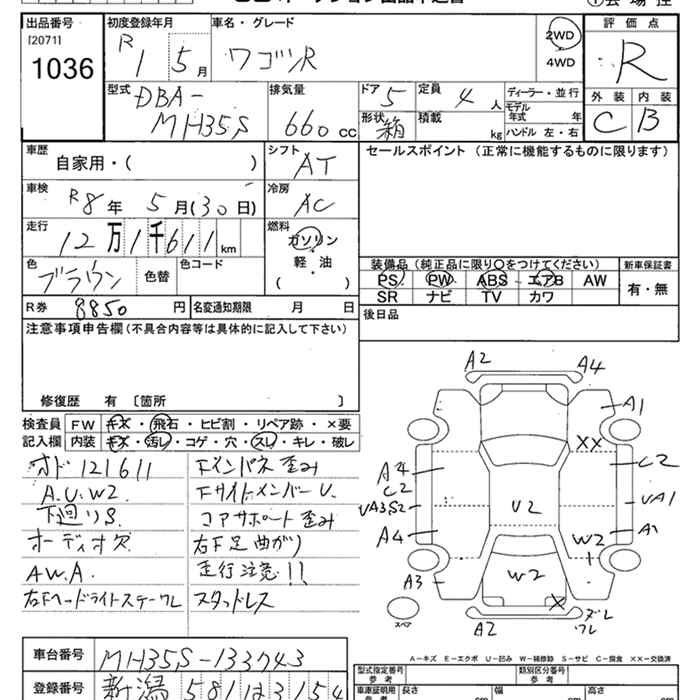 出品番号
[2071]
1036
初度登録年月
R1 5月
車名・グレード
ワゴンR
2WD
4WD
評価点
R
外装 内装
C B
型式
DBA-
MH35S
排気量
660cc
ドア 5
定員 4人
形状 箱
積載 kg
ディーラー・並行
モデル年式 年
ハンドル 左・右
車歴
自家用・( )
シフト
AT
セールスポイント (正常に機能するものに限ります)
車検
R8年 5月(30日)
冷房
AC
走行
12万1千611km
燃料
ガソリン
軽・油
( )
色
ブラウン
色替
色コード
装備品 (純正品に限り○をつけてください)
PS PW ABS エアB AW
SR ナビ TV カワ
新車保証書
有・無
R券 8850円
名変通知期限 月 日
後日品
注意事項申告欄 (不具合内容等は具体的に記入して下さい)
修復歴 有 〔箇所 〕
検査員記入欄
FW キズ・飛石・ヒビ割・リペア跡・×要
内装 キズ・汚レ・コゲ・穴・スレ・キレ・破レ
オド 121611
A.U.W2.
下廻りS.
オーディオ欠
AW.A.
右F ヘッドライトステーワレ
Fインパネ歪み
FサイドメンバーU.
コアサポート歪み
右F足曲がり
走行注意!!
スタッドレス
A2
A4
A1
XX
C2
UA1
A1
W2
A4
C2
UA3S2
A4
A3
U2
W2
X
A2
ズレ
ワレ
スペア
A-キズ E-エクボ U-凹み W-補修跡 S-サビ C-腐食 ××-交換済
車台番号
MH35S-133743
登録番号
新潟 581 は 3154
型式指定番号
参考
類別区分番号
参考
車庫証明用
参考
長さ cm
幅 cm
高さ cm